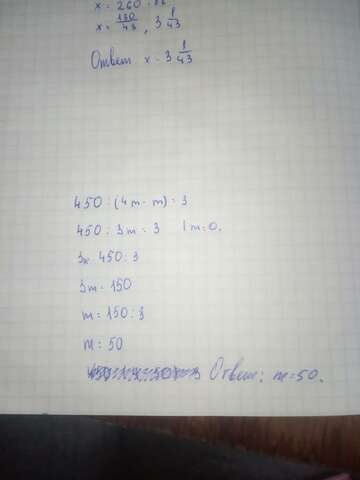 x = 260 : 86
x = 130/43, 3 1/43
Ответ x = 3 1/43
450 : (4m - m) = 3
450 : 3m = 3 1m=0.
3x 450 : 3
3m = 150
m = 150 : 3
m = 50
Ответ: m=50.